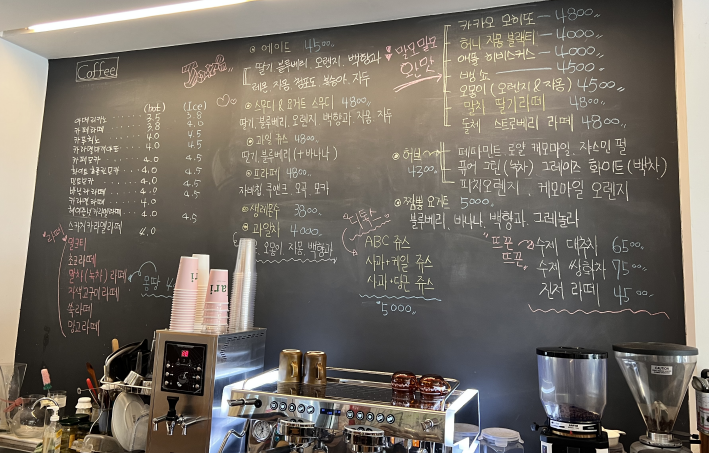 Coffee
(hot) (Ice)
아메리카노 3.5 3.8
카페라떼 3.8 4.0
카푸치노 4.0 4.5
카라멜마끼아또 4.0 4.5
카페모카 4.0 4.5
화이트초콜릿모카 4.0 4.5
민트모카 4.0 4.5
바닐라라떼 4.0 4.5
카라멜라떼 4.0
헤이즐넛카라멜라떼 4.0 4.5
스카치카라멜라떼 4.0
라떼
밀크티
초코라떼
말차(녹차)라떼
자색고구마라떼
쑥라떼
망고라떼
몽땅
에이드 4500
딸기, 블루베리, 오렌지, 백향과
레몬, 자몽, 청포도, 복숭아, 자두
스무디 & 요거트 스무디 4800
딸기, 블루베리, 오렌지, 백향과, 자몽, 자두
과일 쥬스 4800
딸기, 블루베리 (+바나나)
프라페 4800
자바칩, 쿠앤크, 모카
생레몬수 3800
과일차 4000
오몽이, 자몽, 백향과
카카오 모히또 - 4800
허니 자몽 블랙티 - 4000
애플 히비스커스 - 4000
4500
오몽이 (오렌지 & 자몽) 4500
말차 딸기라떼 4800
돌체 스트로베리 라떼 4800
허브 4300
페파민트, 로얄 캐모마일, 자스민 펄
퓨어 그린(녹차) 그레이스 화이트(백차)
피치오렌지, 캐모마일 오렌지
점보 요거트 5000
블루베리, 바나나, 백향과, 그래놀라
디톡스
ABC 쥬스
사과+케일 쥬스
사과+당근 쥬스
5000
뜨끈 뜨끈
수제 대추차 6500
수제 쌍화차 7500
진저 라떼 4500
ari